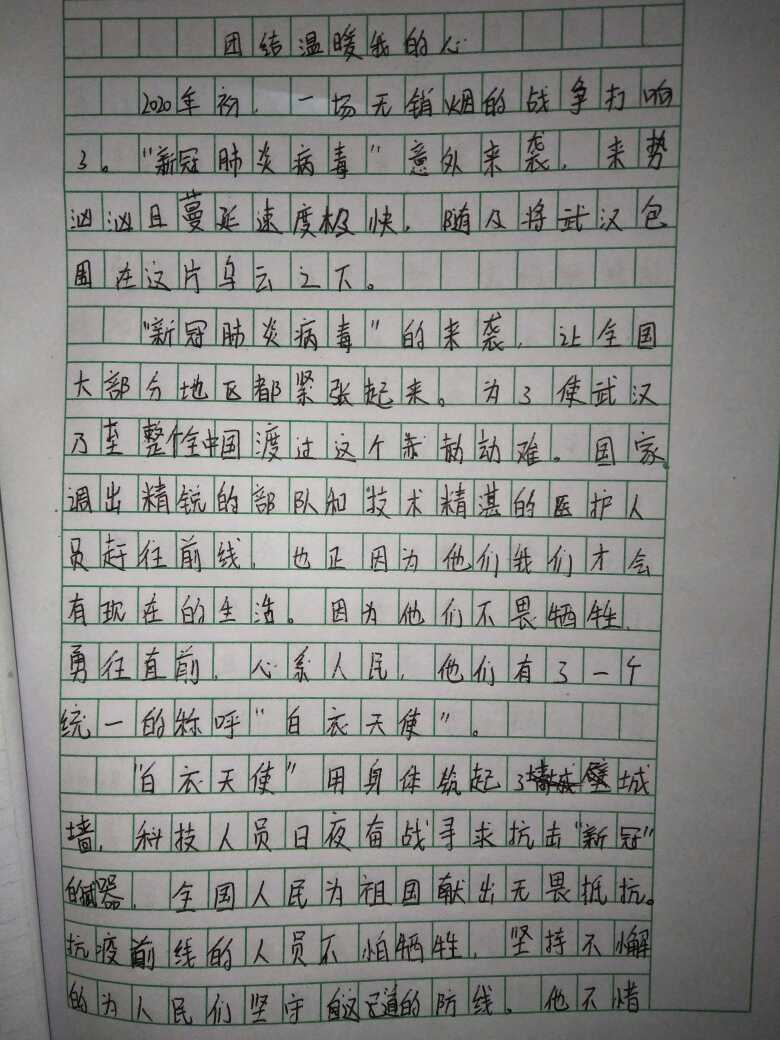 团结温暖我的心
2020年初，一场无销烟的战争打响
了。“新冠肺炎病毒”意外来袭，来势
汹汹且蔓延速度极快，随及将武汉包
围在这片乌云之下。
“新冠肺炎病毒”的来袭，让全国
大部分地区都紧张起来。为了使武汉
乃至整个全中国渡过这个劫难。国家
调出精锐的部队和技术精湛的医护人
员赶往前线，也正因为他们我们才会
有现在的生活。因为他们不畏牺牲，
勇往直前，心系人民，他们有了一个
统一的称呼“白衣天使”。
“白衣天使”用身体筑起了壁城
墙，科技人员日夜奋战寻求抗击“新冠”
的武器，全国人民为祖国献出无畏抵抗。
抗疫前线的人员不怕牺牲，坚持不懈
的为人民们坚守这道的防线。他不惜